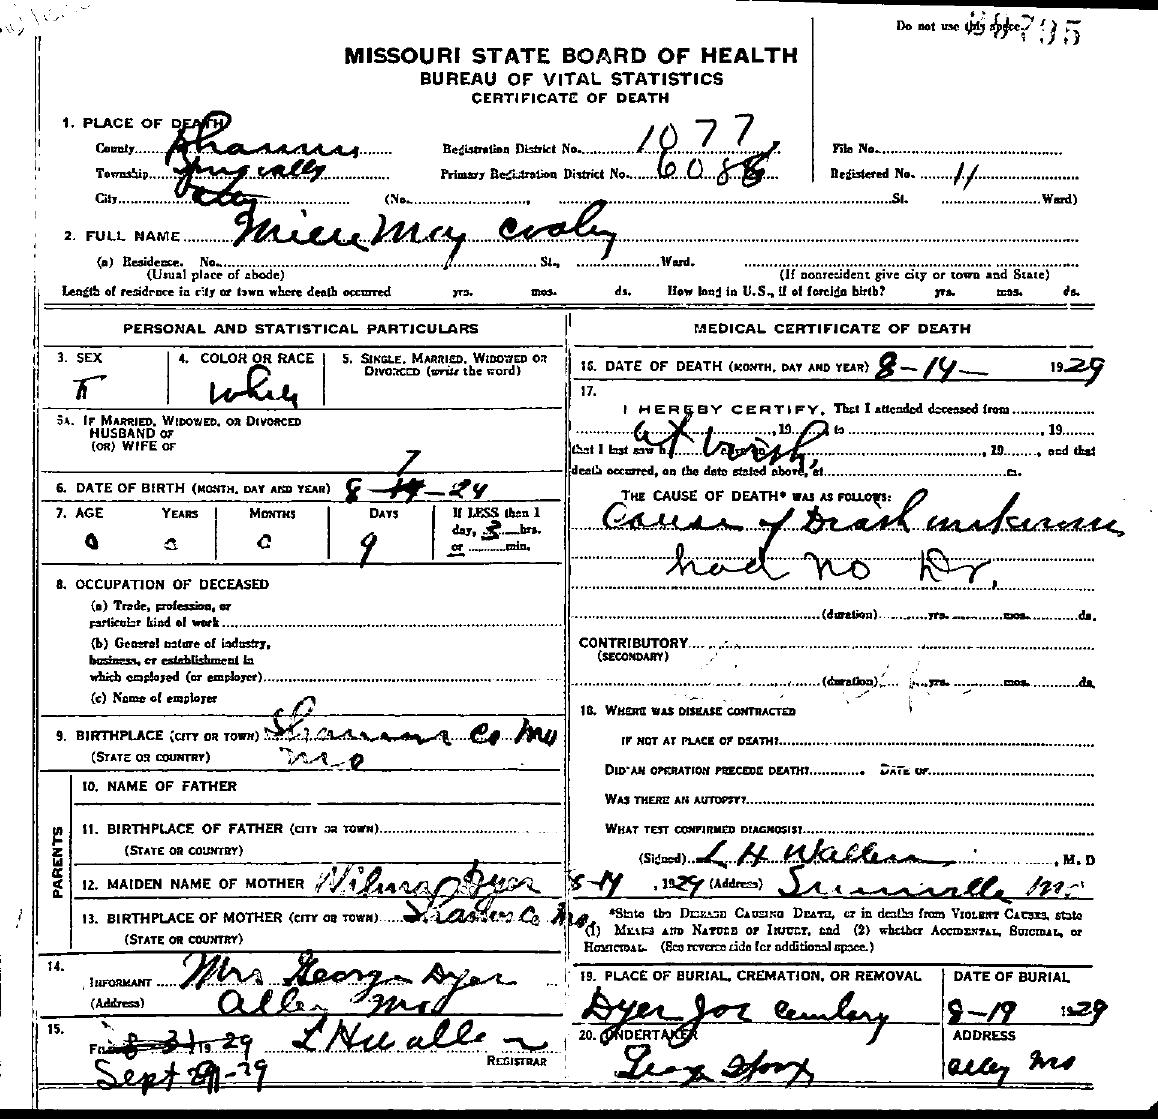 Do not use this space.
MISSOURI STATE BOARD OF HEALTH
BUREAU OF VITAL STATISTICS
CERTIFICATE OF DEATH
1. PLACE OF DEATH
County Shannon Registration District No. 1077 File No.
Township Spring Valley Primary Registration District No. 6088 Registered No. 11
City (No. St. Ward)
2. FULL NAME May Cooley
(a) Residence. No. St., Ward.
(Usual place of abode) (If nonresident give city or town and State)
Length of residence in city or town where death occurred yrs. mos. ds. How long in U.S., if of foreign birth? yrs. mos. ds.
PERSONAL AND STATISTICAL PARTICULARS
3. SEX 4. COLOR OR RACE 5. SINGLE, MARRIED, WIDOWED OR DIVORCED (write the word)
F White
5A. IF MARRIED, WIDOWED, OR DIVORCED
HUSBAND OF
(OR) WIFE OF
7
6. DATE OF BIRTH (MONTH, DAY AND YEAR) 8-14-29
7. AGE YEARS MONTHS DAYS If LESS than 1
day, 3 hrs.
or min.
0 0 0 9
8. OCCUPATION OF DECEASED
(a) Trade, profession, or
particular kind of work
(b) General nature of industry,
business, or establishment in
which employed (or employer)
(c) Name of employer
9. BIRTHPLACE (CITY OR TOWN) Shannon Co Mo
(STATE OR COUNTRY) Mo
PARENTS
10. NAME OF FATHER
11. BIRTHPLACE OF FATHER (CITY OR TOWN)
(STATE OR COUNTRY)
12. MAIDEN NAME OF MOTHER Wilma Dyer
13. BIRTHPLACE OF MOTHER (CITY OR TOWN) Shannon Co Mo,
(STATE OR COUNTRY)
14.
INFORMANT Mrs George Dyer
(Address) Mo
15.
8-31 19 29
Sept 29 REGISTRAR
MEDICAL CERTIFICATE OF DEATH
16. DATE OF DEATH (MONTH, DAY AND YEAR) 8-14- 1929
17.
I HEREBY CERTIFY, That I attended deceased from
, 19 to , 19
that I last saw h , 19 , and that
death occurred, on the date stated above, at m.
THE CAUSE OF DEATH* WAS AS FOLLOWS:
Cause of Death unknown
had no Dr.
(duration) yrs. mos. ds.
CONTRIBUTORY
(SECONDARY)
(duration) yrs. mos. ds.
18. WHERE WAS DISEASE CONTRACTED
IF NOT AT PLACE OF DEATH?
DID AN OPERATION PRECEDE DEATH? DATE OF
WAS THERE AN AUTOPSY?
WHAT TEST CONFIRMED DIAGNOSIS?
(Signed) L H , M. D
8-14 , 1929 (Address) Summerville Mo
*State the DISEASE CAUSING DEATH, or in deaths from VIOLENT CAUSES, state
(1) MEANS AND NATURE OF INJURY, and (2) whether ACCIDENTAL, SUICIDAL, or
HOMICIDAL. (See reverse side for additional space.)
19. PLACE OF BURIAL, CREMATION, OR REMOVAL DATE OF BURIAL
Dyer Cemetery 8-19 1929
20. UNDERTAKER ADDRESS
George Mo